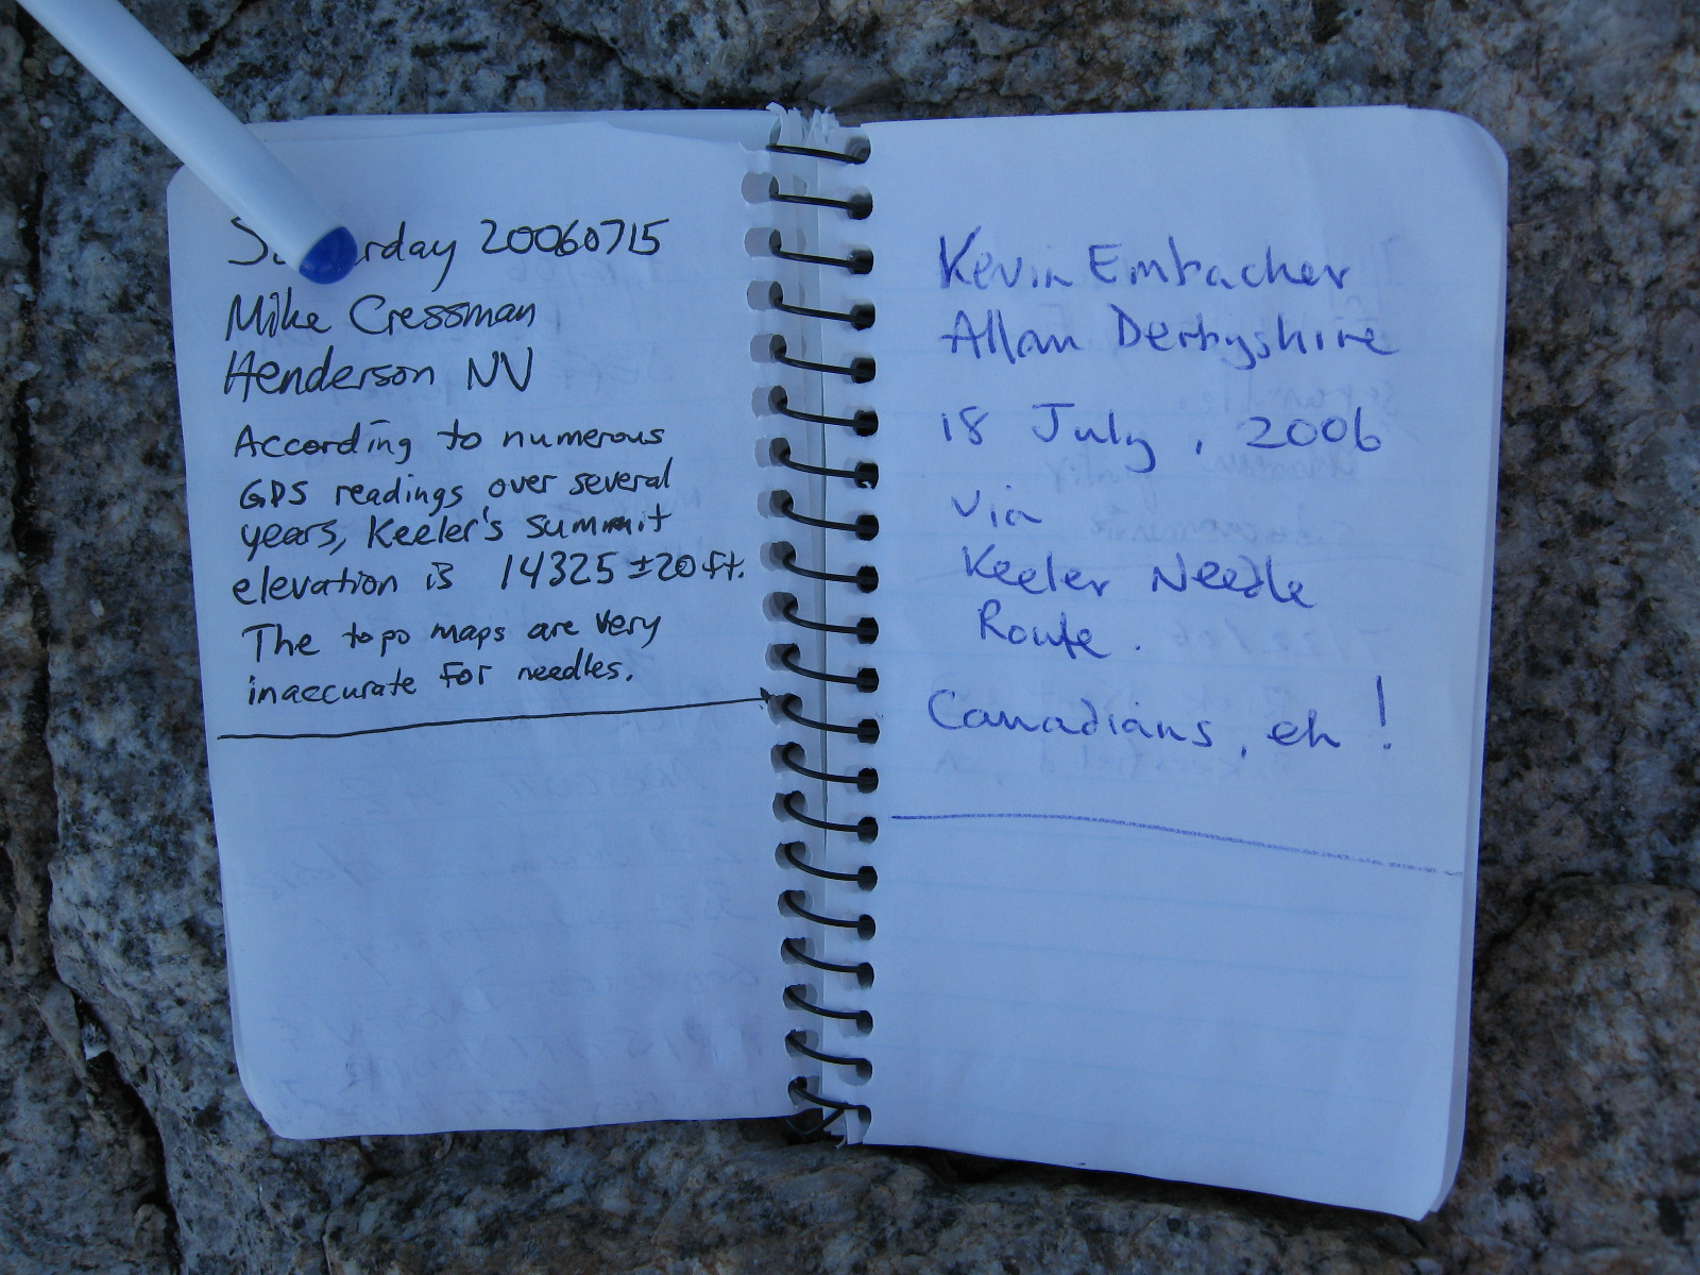 Saturday 20060715
Mike Cressman
Henderson NV
According to numerous
GPS readings over several
years, Keeler's summit
elevation is 14325 ±20 ft.
The topo maps are very
inaccurate for needles.
Kevin Embacher
Allan Derbyshire
18 July, 2006
via
Keeler Needle
Route.
Canadians, eh!